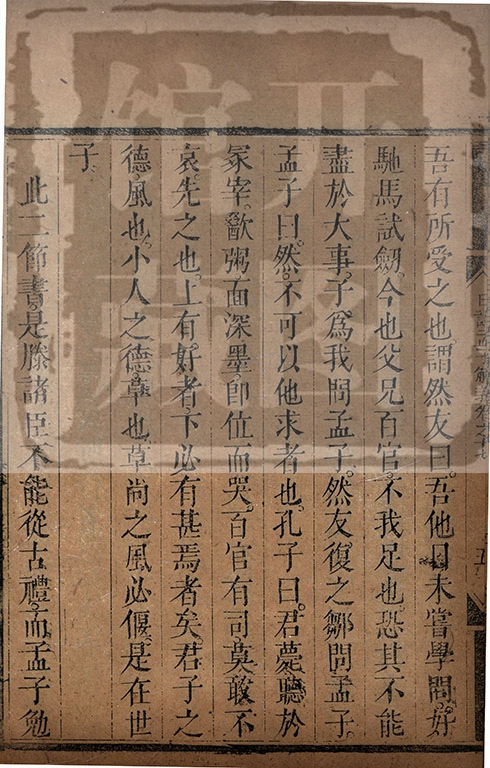 吾有所受之也。謂然友曰。吾他日未嘗學問。好
馳馬試劒。今也父兄百官。不我足也。恐其不能
盡於大事。子爲我問孟子。然友復之鄒問孟子。
孟子曰。然。不可以他求者也。孔子曰。君薨。聽於
冡宰。歠粥。面深墨。即位而哭。百官有司莫敢不
哀。先之也。上有好者。下必有甚焉者矣。君子之
德。風也。小人之德。草也。草尚之風必偃。是在世
子。
此二節書。是滕諸臣不能從古禮。而孟子勉